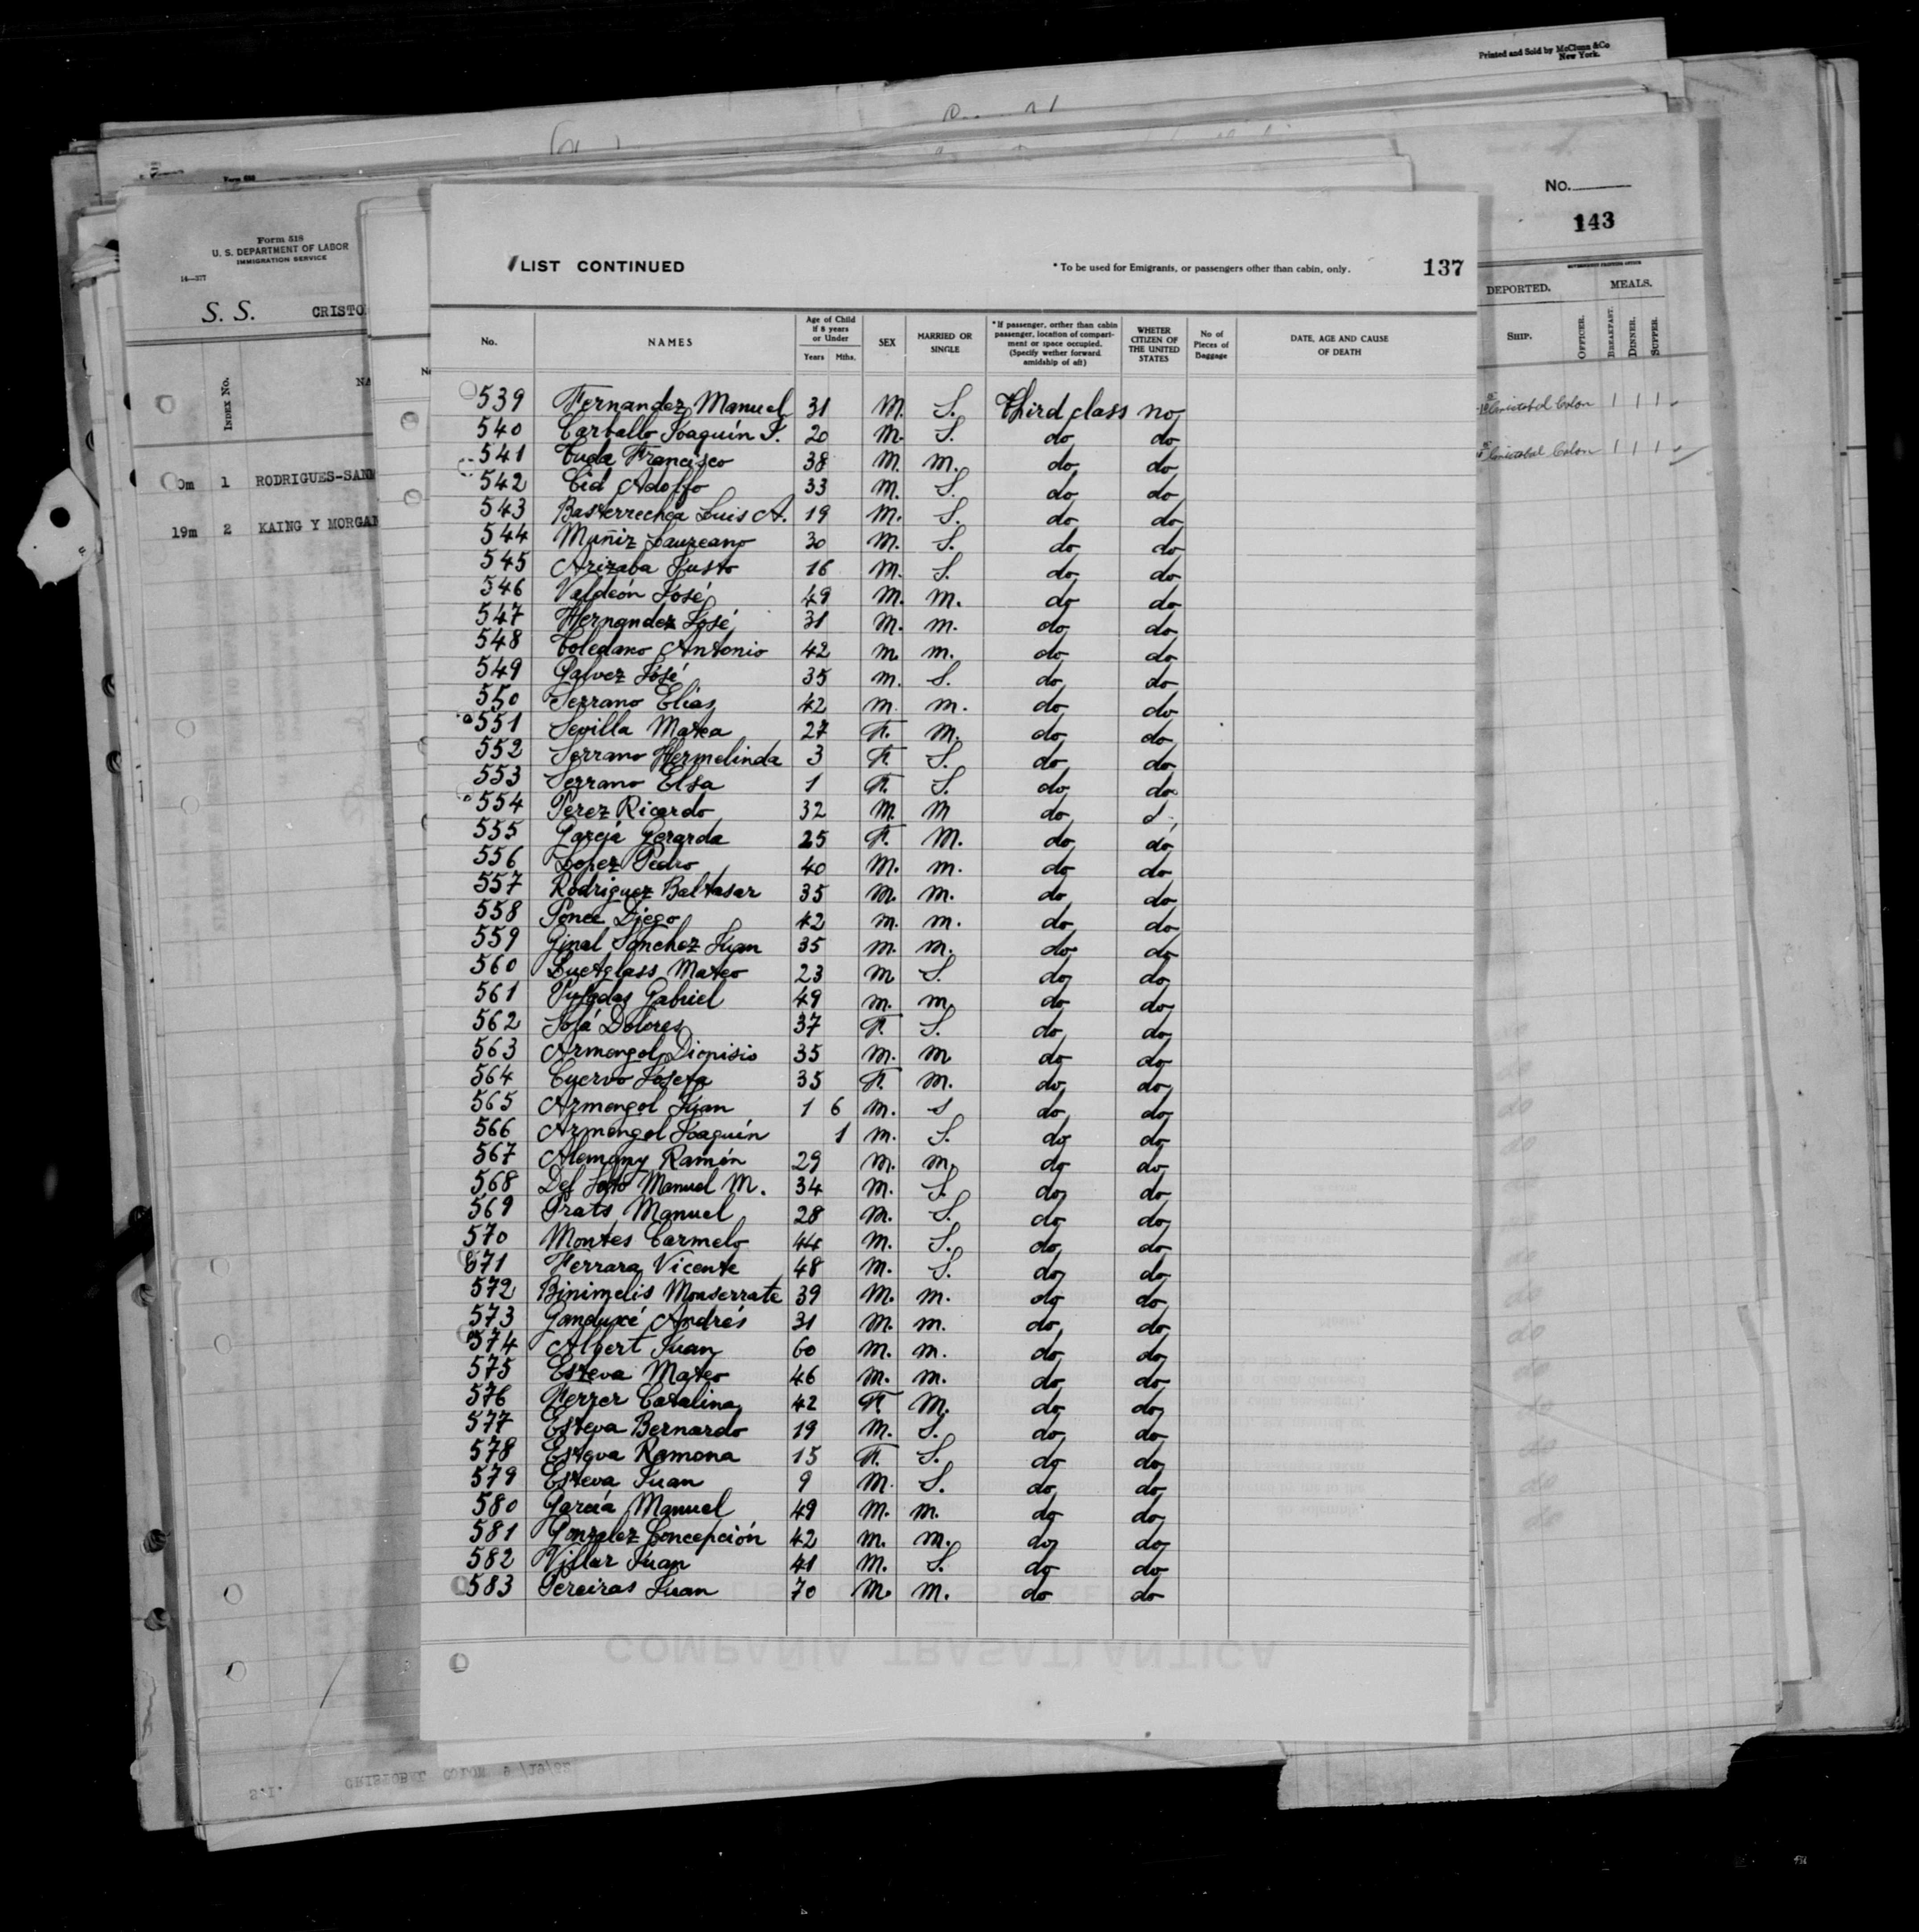 Printed and Sold by McClunn & Co
New York.
No.
143
Form 518
U. S. DEPARTMENT OF LABOR
IMMIGRATION SERVICE
14—377
S. S. CRISTO
INDEX No.
NA
0m 1 RODRIGUES-SANM
19m 2 KAING Y MORGAN
LIST CONTINUED
* To be used for Emigrants, or passengers other than cabin, only.
137
No. NAMES Age of Child If 8 years or Under Years Mths. SEX MARRIED OR SINGLE * If passenger, orther than cabin passenger, location of compartment or space occupied. (Specify wether forward amidship of aft) WHETER CITIZEN OF THE UNITED STATES No of Pieces of Baggage DATE, AGE AND CAUSE OF DEATH
DEPORTED. MEALS.
SHIP. OFFICER. BREAKFAST. DINNER. SUPPER.
Cristobal Colon 1 1 1
Cristobal Colon 1 1 1
539 Fernandez Manuel 31 M. S. third class no
540 Carballo Joaquín J. 20 M. S. do do
541 Tuda Francisco 38 M. M. do do
542 Cid Adolfo 33 M. S. do do
543 Basterrechea Luis A. 19 M. S. do do
544 Muñiz Laureano 30 M. S. do do
545 Arizaba Justo 16 M. S. do do
546 Valdeón José 49 M. M. do do
547 Hernandez José 31 M. M. do do
548 Toledano Antonio 42 M. M. do do
549 Galvez José 35 M. S. do do
550 Serrano Elías 42 M. M. do do
551 Sevilla Matea 27 F. M. do do
552 Serrano Hermelinda 3 F. S. do do
553 Serrano Elsa 1 F. S. do do
554 Perez Ricardo 32 M. M do d
555 García Gerarda 25 F. M. do do
556 Lopez Pedro 40 M. M. do do
557 Rodriguez Baltasar 35 M. M. do do
558 Ponce Diego 42 M. M. do do
559 Ginel Sanchez Juan 35 M. M. do do
560 Lluctglass Mateo 23 M S. do do
561 Pujadas Gabriel 49 M. M. do do
562 Solá Dolores 37 F. S. do do
563 Armengol Dionisio 35 M. M do do
564 Cuervo Josefa 35 F. M. do do
565 Armengol Juan 1 6 M. S do do
566 Armengol Joaquín 1 M. S. do do
567 Alemany Ramón 29 M. M. do do
568 Del Soto Manuel M. 34 M. S. do do
569 Prats Manuel 28 M. S. do do
570 Montes Carmelo 44 M. S. do do
571 Ferrara Vicente 48 M. S. do do
572 Binimelis Monserrate 39 M. M. do do
573 Ganduxé Andrés 31 M. M. do do
574 Albert Juan 60 M. M. do do
575 Esteva Mateo 46 M. M. do do
576 Ferrer Catalina 42 F. M. do do
577 Esteva Bernardo 19 M. S. do do
578 Esteva Ramona 15 F. S. do do
579 Esteva Juan 9 M. S. do do
580 García Manuel 49 M. M. do do
581 Gonzalez Concepción 42 M. M. do do
582 Villar Juan 41 M. S. do do
583 Pereiras Juan 70 M. M. do do
COMPAÑIA TRASATLANTICA
S.I. CRISTOBAL COLON